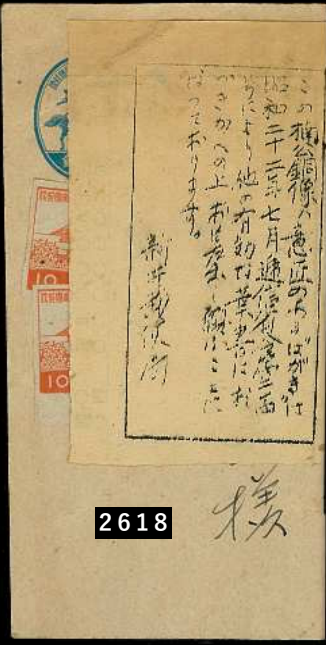 この楠公銅像の意匠のあるはがきは
昭和二十二年七月逓信省令第二百
号により他の有効な葉書にお
引きかへの上お差出し願うことに
なっております。
新井郵便局
様
10
10
2618